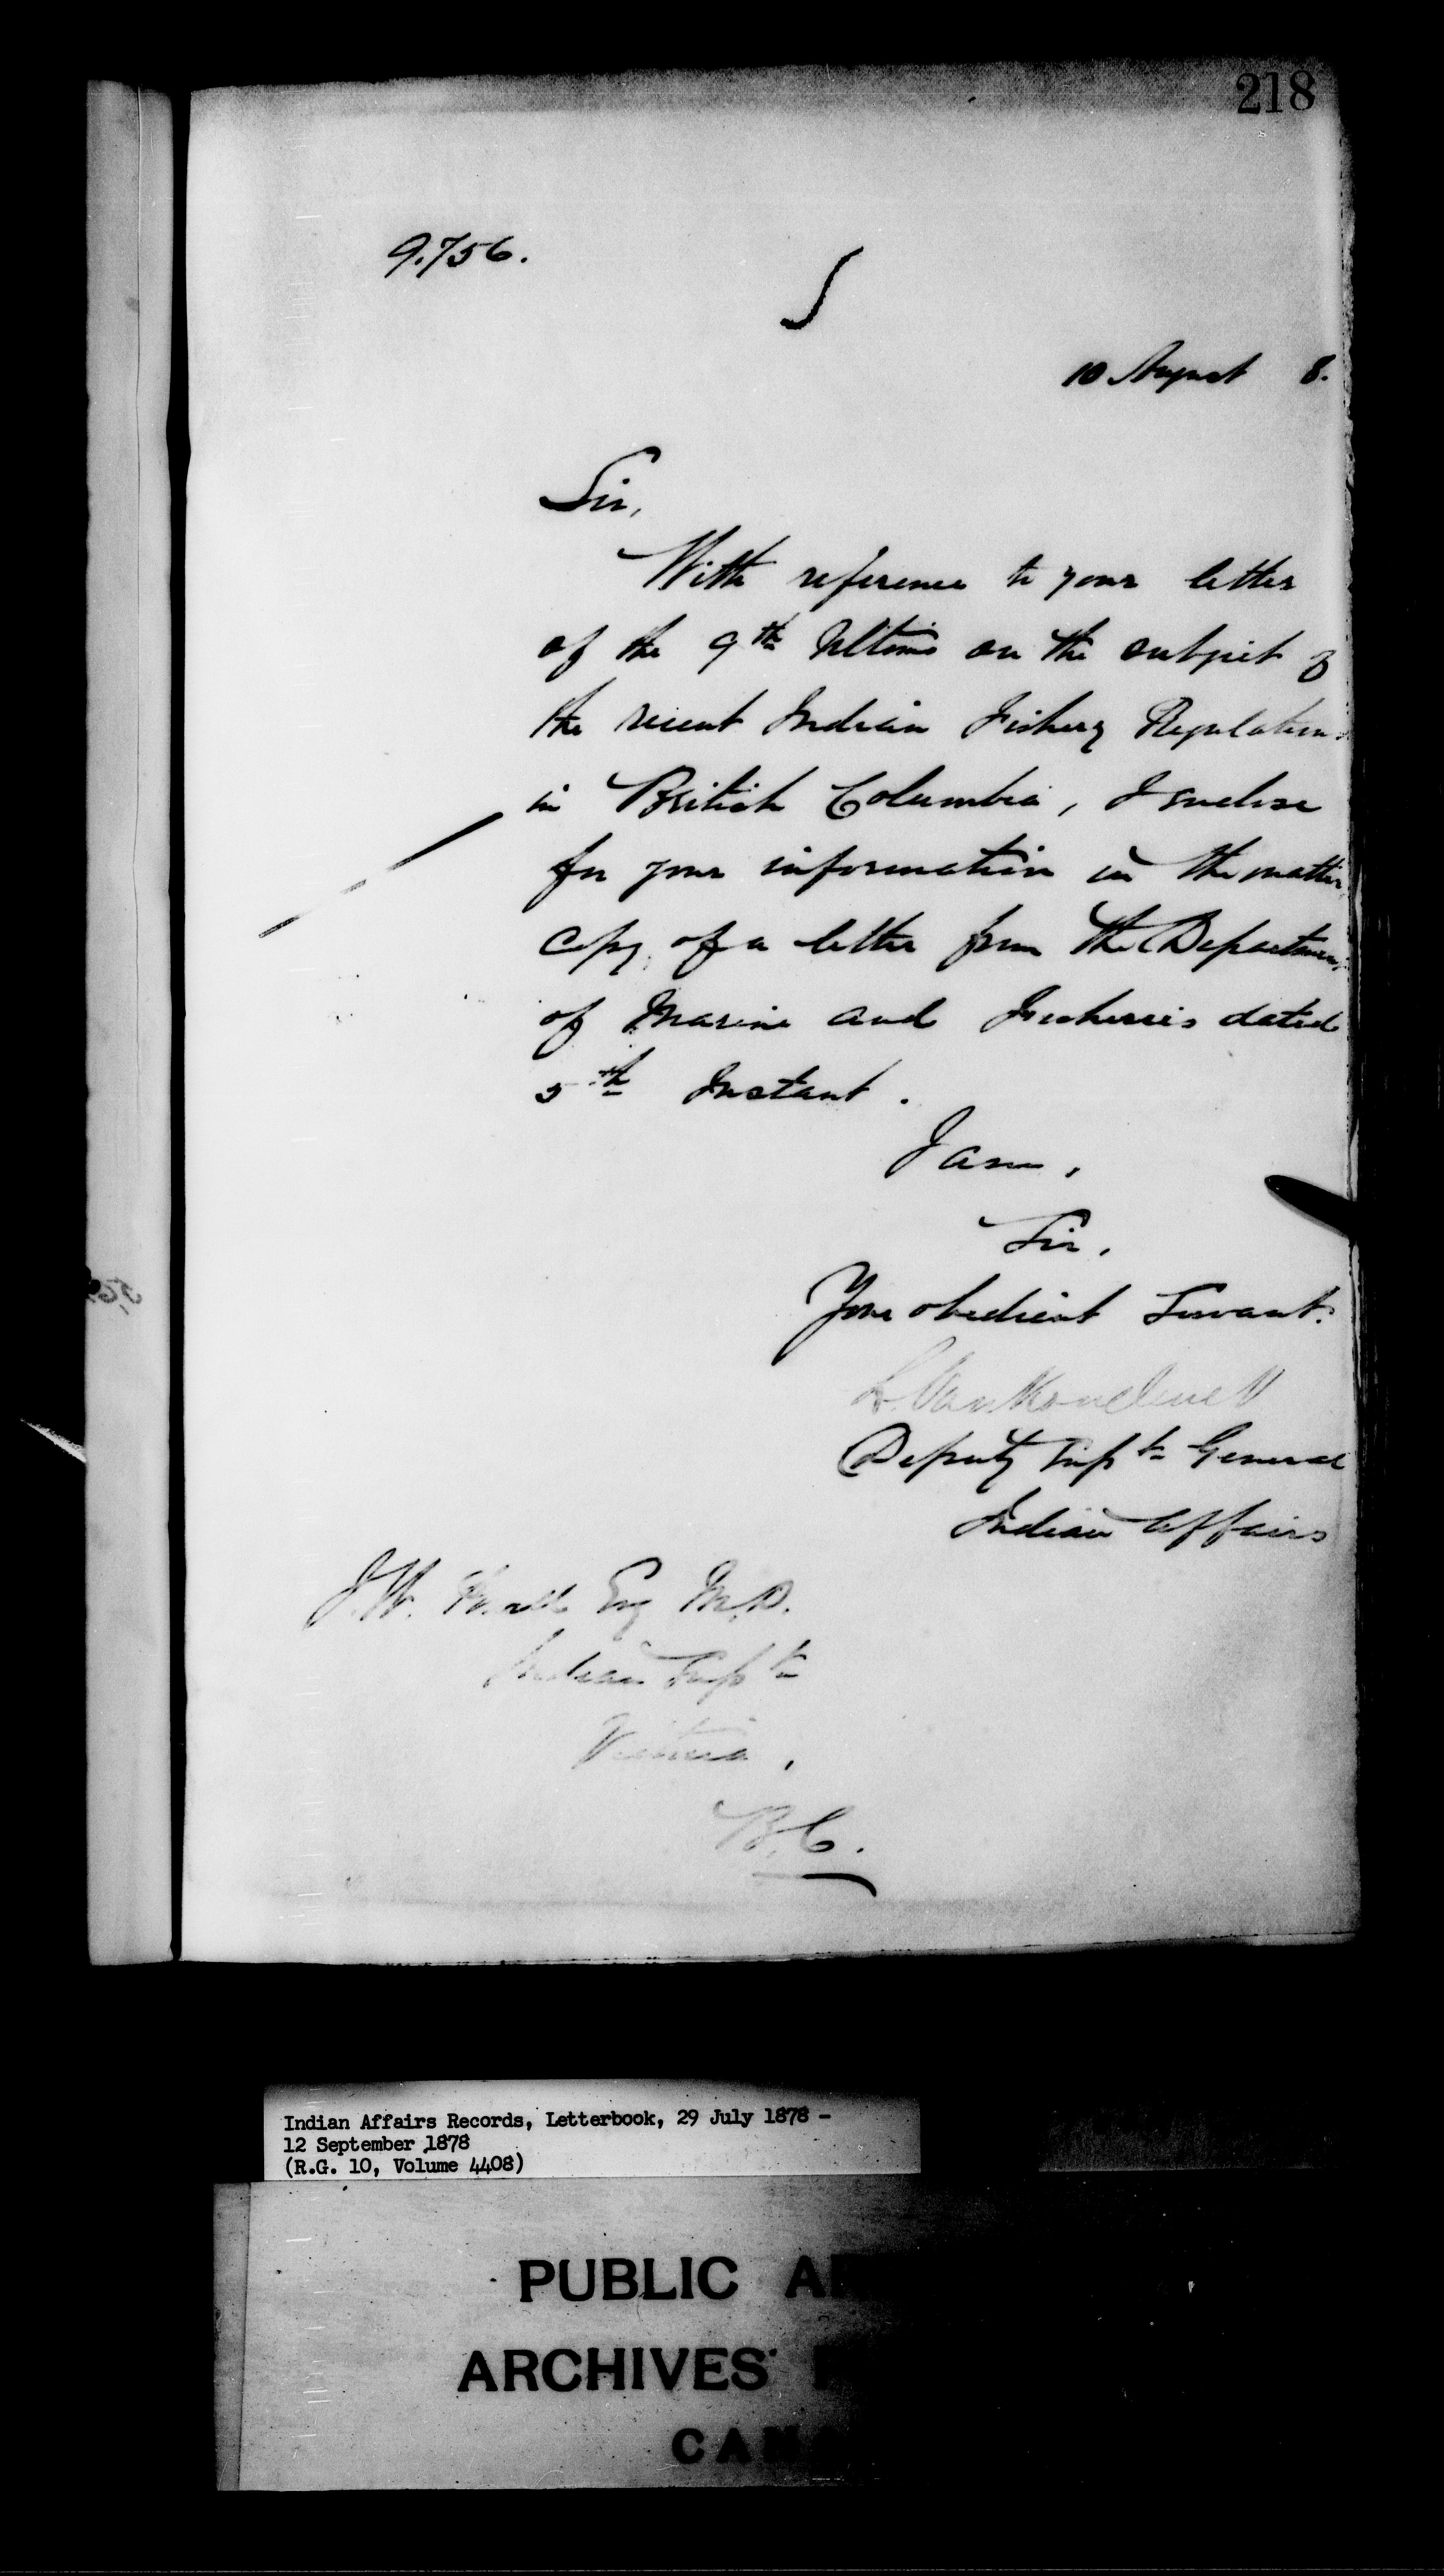 218
9.756.
10 August 8.
Sir,
With reference to your letter
of the 9th Ultimo on the subject of
the recent Indian Fishery Regulations
in British Columbia, I enclose
for your information in the matter
copy of a letter from the Department
of Marine and Fisheries dated
5th Instant.
I am,
Sir,
Your obedient Servant.
L. VanKoughnet
Deputy Supt General
Indian Affairs
J.W. Powell Esq M.D.
Indian Supt
Victoria,
B.C.
Indian Affairs Records, Letterbook, 29 July 1878 -
12 September 1878
(R.G. 10, Volume 4408)
PUBLIC A
ARCHIVES
CAN